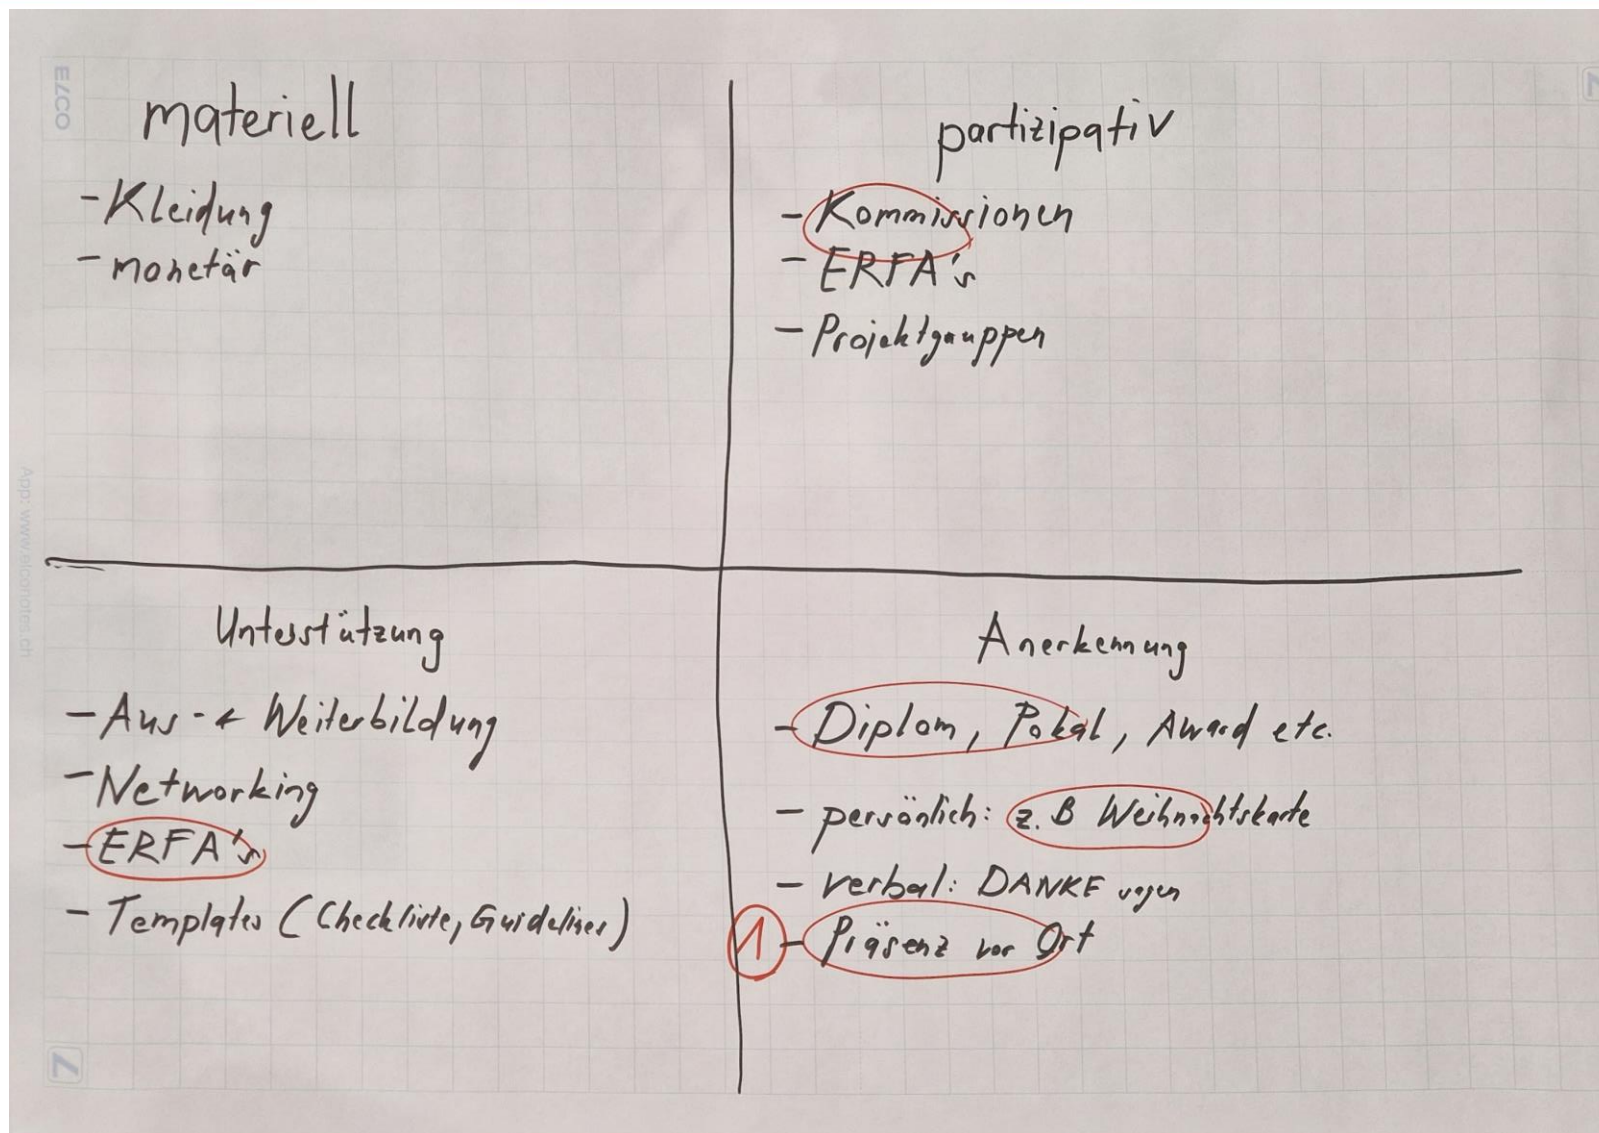 ELCO
materiell
- Kleidung
- monetär
partizipativ
- Kommissionen
- ERFA's
- Projektgruppen
Unterstützung
- Aus- + Weiterbildung
- Networking
- ERFA's
- Templates (Checkliste, Guidelines)
Anerkennung
- Diplom, Pokal, Award etc.
- persönlich: z.B Weihnachtskarte
- verbal: DANKE sagen
1 - Präsenz vor Ort
App: www.elconotes.ch